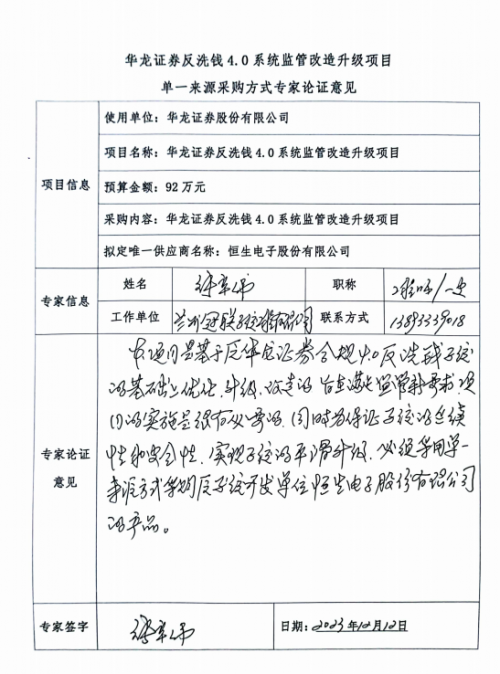 华龙证券反洗钱4.0系统监管改造升级项目
单一来源采购方式专家论证意见
项目信息
使用单位：华龙证券股份有限公司
项目名称：华龙证券反洗钱4.0系统监管改造升级项目
预算金额：92万元
采购内容：华龙证券反洗钱4.0系统监管改造升级项目
拟定唯一供应商名称：恒生电子股份有限公司
专家信息
姓名 职称 工程师/一史
工作单位 兰州冠联系统有限公司 联系方式 13893339018
专家论证
意见
本项目是基于原华龙证券合规4.0反洗钱系统
的基础上优化、升级、改造的 旨在满足监管新要求,项
目的实施是很有必要的,同时为保证系统的连续
性和安全性、实现系统的平滑升级、必须采用单一
来源方式采购原系统开发单位恒生电子股份有限公司
的产品。
专家签字
日期：2023年12月12日